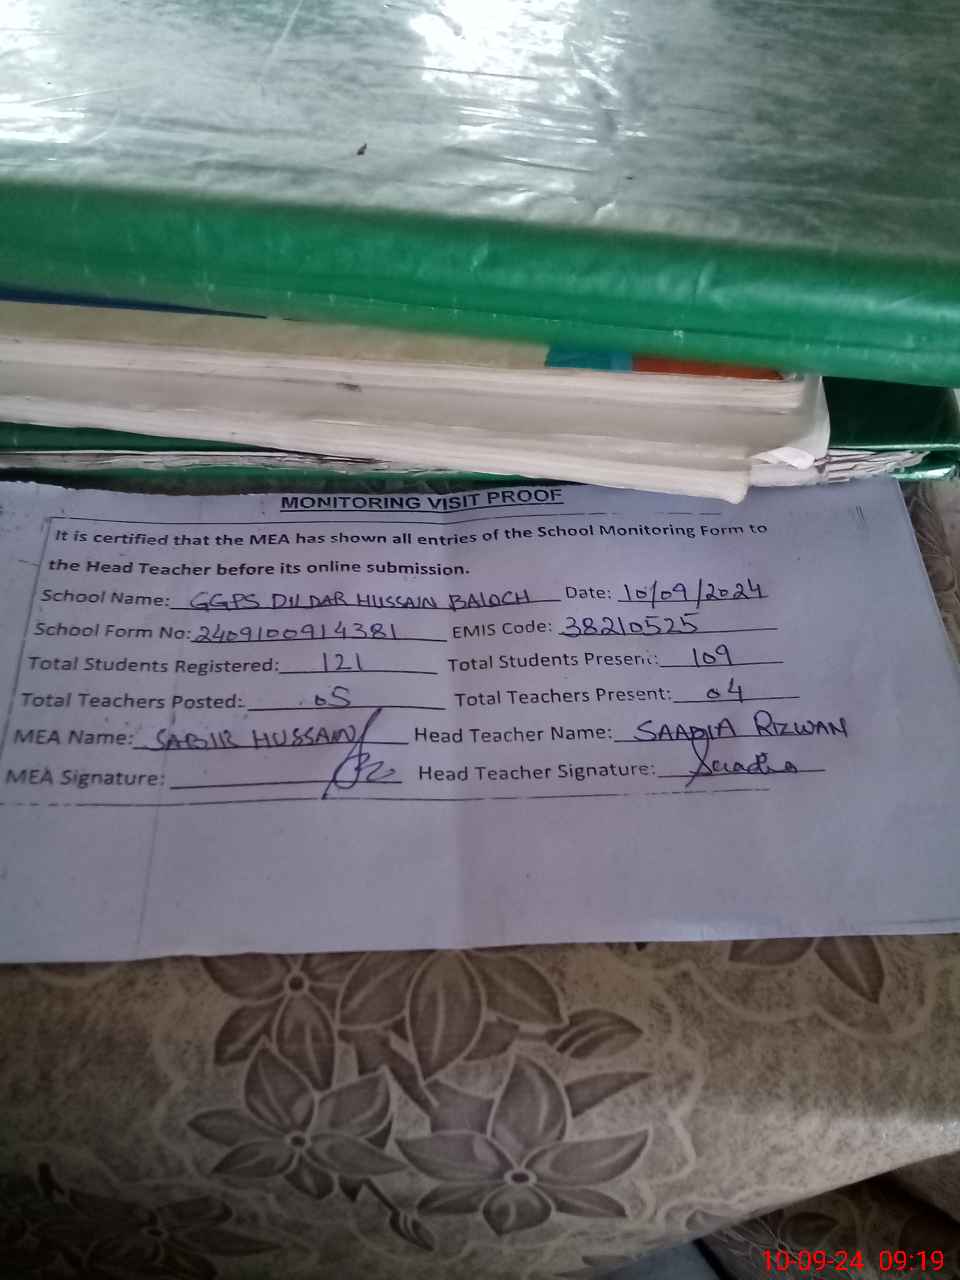 MONITORING VISIT PROOF
It is certified that the MEA has shown all entries of the School Monitoring Form to
the Head Teacher before its online submission.
School Name: GGPS DILDAR HUSSAIN BALOCH Date: 10/09/2024
School Form No: 2409100914381 EMIS Code: 38210525
Total Students Registered: 121 Total Students Present: 109
Total Teachers Posted: 05 Total Teachers Present: 04
MEA Name: SABIR HUSSAIN Head Teacher Name: SAADIA RIZWAN
MEA Signature: Head Teacher Signature: Saadia
10-09-24 09:19